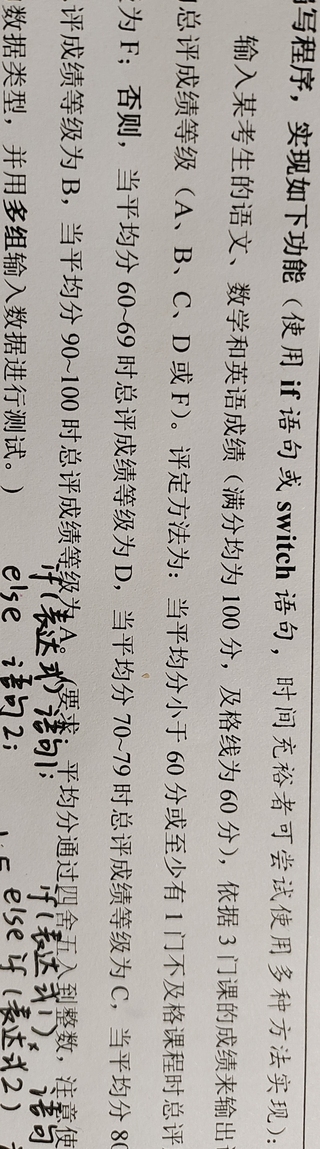 写程序，实现如下功能（使用 if 语句或 switch 语句，时间充裕者可尝试使用多种方法实现）：
输入某考生的语文、数学和英语成绩（满分均为 100 分，及格线为 60 分），依据 3 门课的成绩来输出
总评成绩等级（A、B、C、D 或 F）。评定方法为：当平均分小于 60 分或至少有 1 门不及格课程时总评
为 F；否则，当平均分 60~69 时总评成绩等级为 D，当平均分 70~79 时总评成绩等级为 C，当平均分 80
评成绩等级为 B，当平均分 90~100 时总评成绩等级为 A。（要求：平均分通过四舍五入到整数，注意使
数据类型，并用多组输入数据进行测试。）
if(表达式) 语句1;
else 语句2;
if(表达式1) 语句
else if(表达式2)